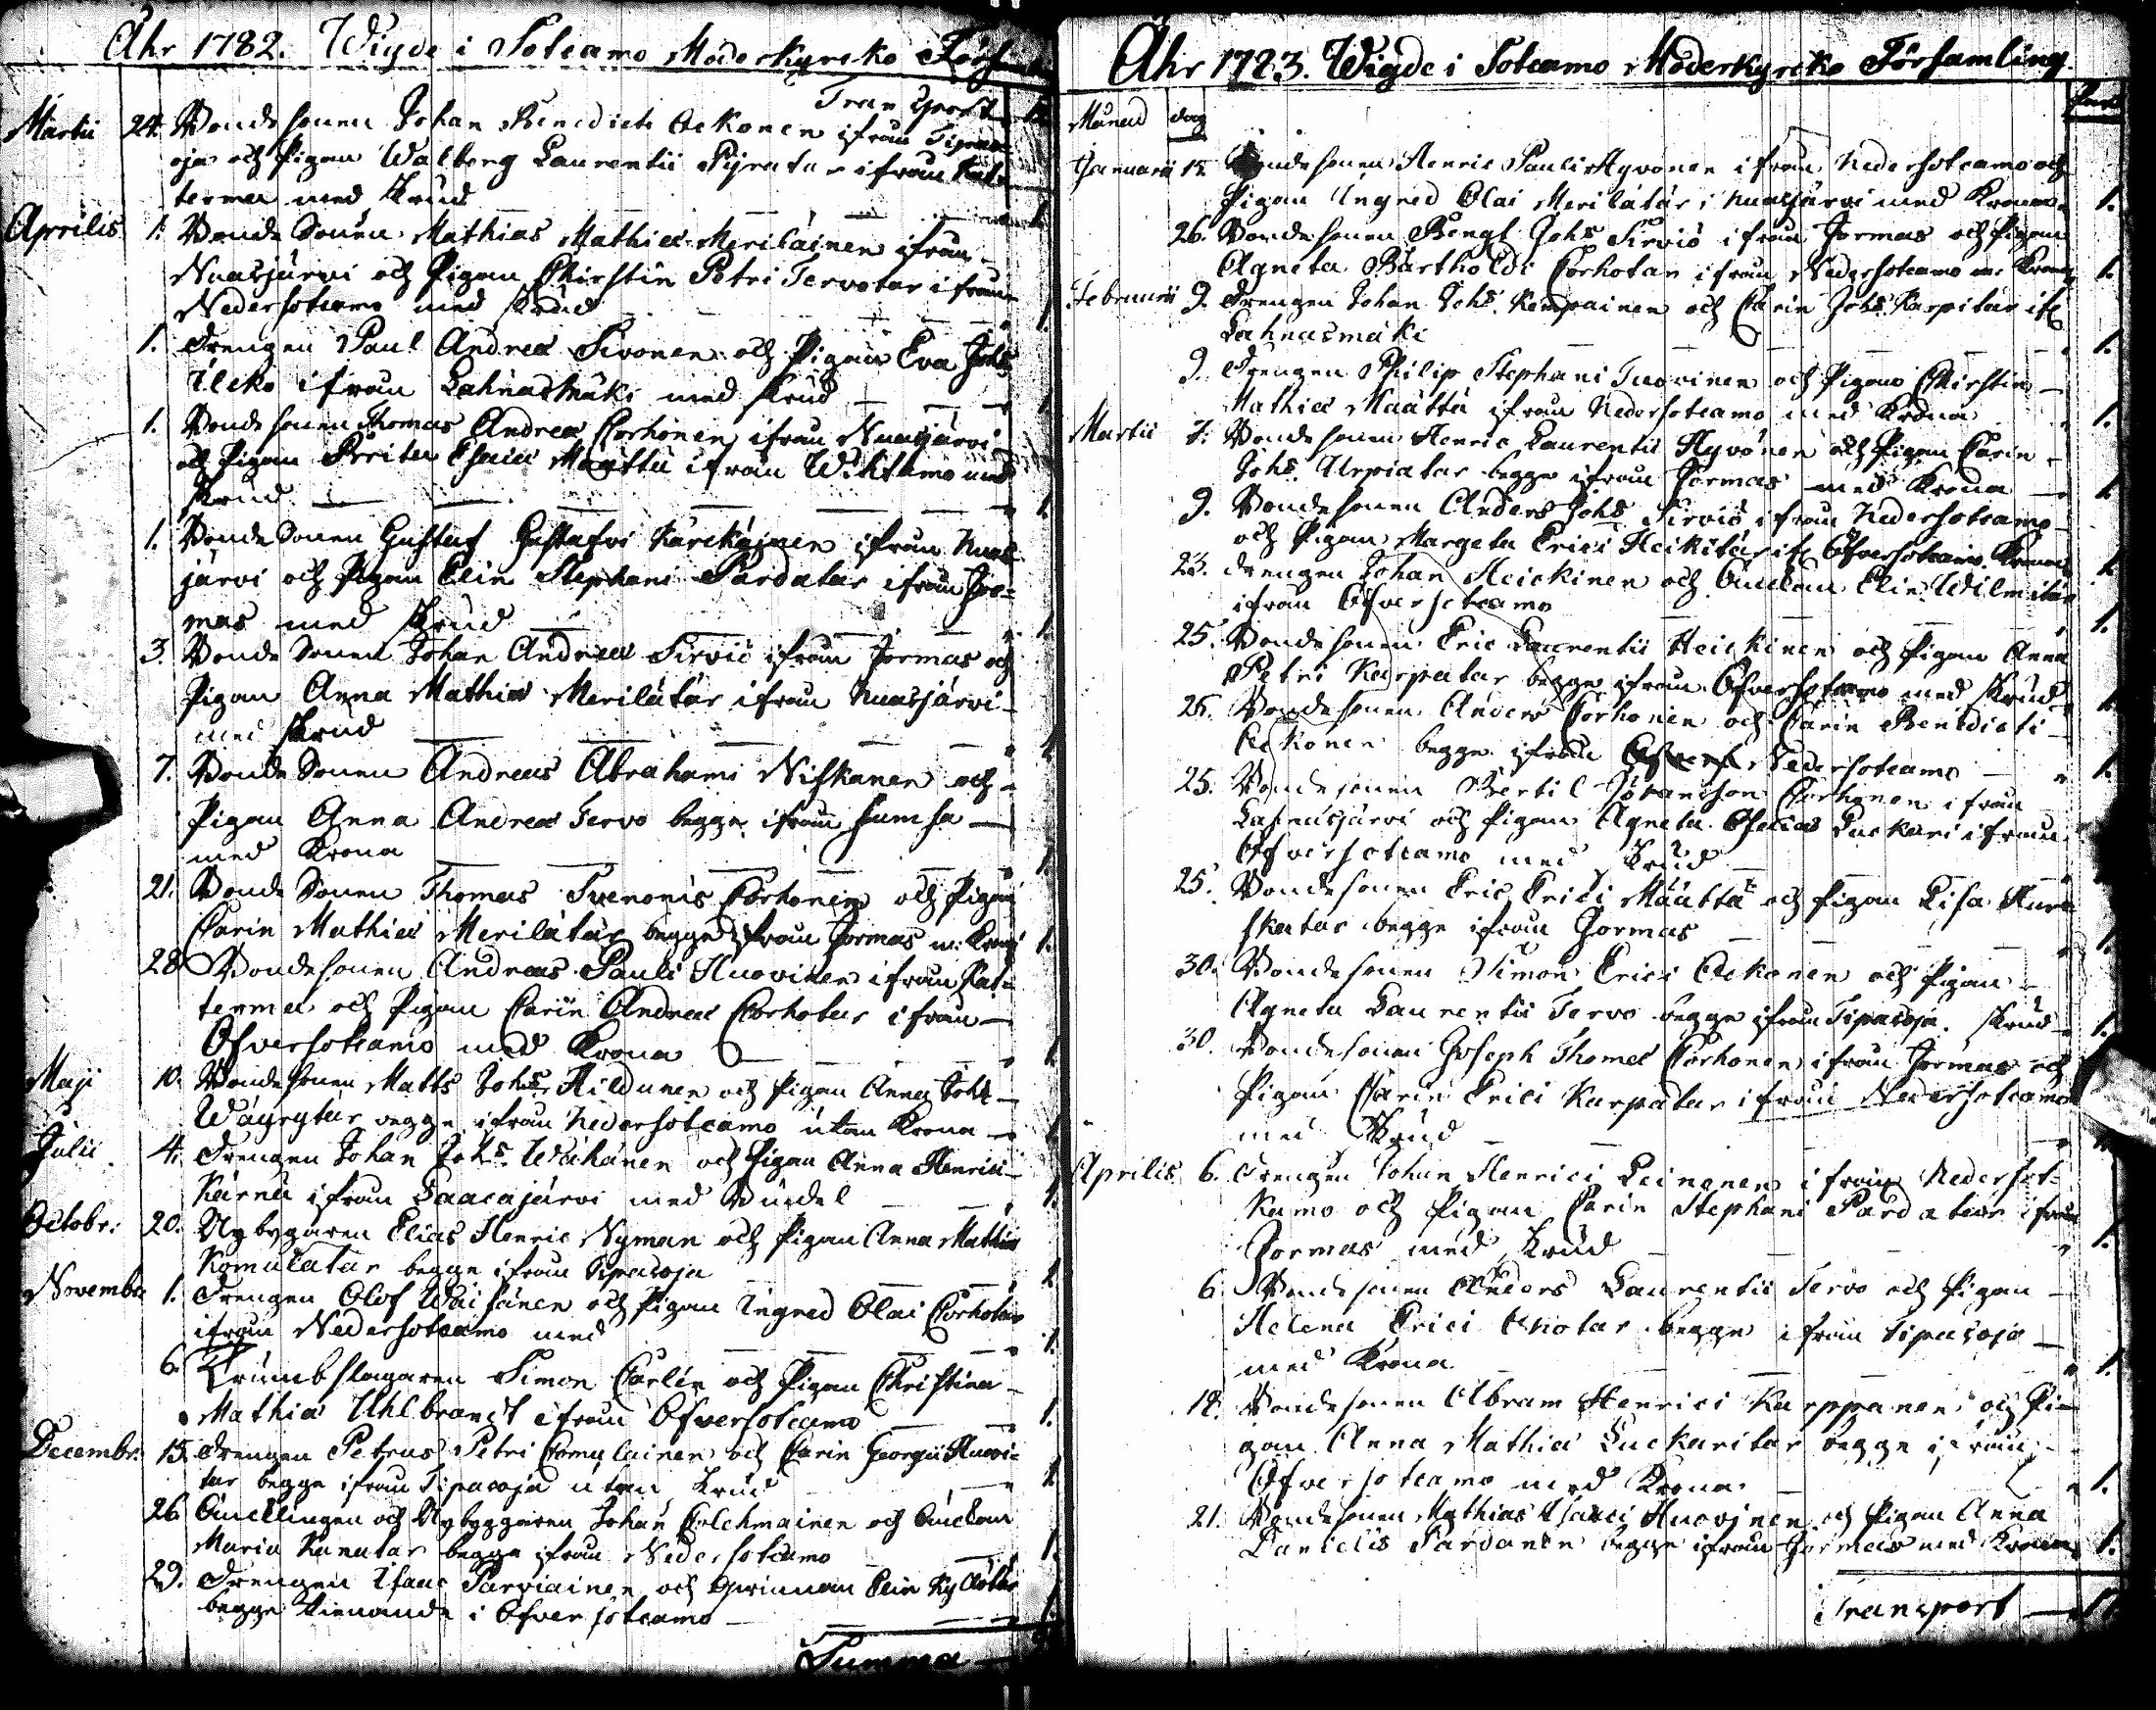 Åhr 1782. Wigde i Sotcamo Moderkyrcko Förs
Transport
Martii 24. Bondesonen Johan Benedicti Ockonen ifrån Tipas-
oja och Pigan Walborg Laurentii Pyratar ifrån Kat-
terma med Skrud 1.
Aprilis 1. Bonde Sonen Mathias Mathiæ Meriläinen ifrån
Nuasjärvi och Pigan Christin Petri Tervotar ifrån
Nedersotcamo med Skrud 1.
1. Drengen Paul Andreæ Sivonen och Pigan Eva Johs
Ulcko ifrån Lahnasmäki med Skrud 1.
1. Bonde sonen Thomas Andreæ Corhonen ifrån Nuasjärvi
och Pigan Brita Esaiæ Määttä ifrån Wuktamo med
Skrud 1.
1. Bonde Sonen Gustaf Gustafvi Karckainen ifrån Nuas-
järvi och Pigan Elin Stephani Pardatar ifrån Jor-
mas med Skrud 1.
3. Bonde Sonen Johan Andreæ Sirviö ifrån Jormas och
Pigan Anna Mathiæ Merilätär ifrån Nuasjärvi
med Skrud 1.
7. Bonde Sonen Andreas Abrahami Niskanen och
Pigan Anna Andreæ Tervo begge ifrån Sumsa
med Krona 1.
21. Bonde Sonen Thomas Svenonis Corhonen och Pigan
Carin Mathiæ Merilätär begge ifrån Jormas m. Krona 1.
28. Bondesonen Andreas Pauli Huovinen ifrån Kat-
terma och Pigan Carin Andreæ Corhotar ifrån
Öfversotcamo med Krona 1.
Maji 10. Bonde sonen Matts Johs. Hildunen och Pigan Anna Johs
Wäyrytär begge ifrån Nedersotcamo utan Krona 1.
Julii 4. Drengen Johan Johs. Wähänen och Pigan Anna Henrici
Kärnä ifrån Laacajärvi med Bindel 1.
Octobr. 20. Nybygaren Elias Henric Nyman och Pigan Anna Mathiæ
Komulatar begge ifrån Tipasoja 1.
Novembr 1. Drengen Olof Wäisänen och Pigan Ingred Olai Corhotar
ifrån Nedersotcamo med 1.
6. Trumbslagaren Simon Carlin och Pigan Christina
Mathiæ Uhlbrandt ifrån Öfversotcamo 1.
Decembr. 15. Drengen Petrus Petri Comulainen och Carin Georgii Huovi-
tar begge ifrån Tipasoja utan Skrud 1.
26. Änklingen och Nybyggaren Johan Colehmainen och Änckan
Maria Kanatar begge ifrån Nedersotcamo 1.
29. Drengen Isaac Parviainen och Qvinnan Elin Kyllötär
begge tienande i Öfversotcamo 1.
Summa
Åhr 1783. Wigde i Sotcamo Moderkyrcko Församling.
Månad dag
Januarii 12. Bondesonen Henric Pauli Hyvönen ifrån Nedersotcamo och
Pigan Ingred Olai Merilätär i Nuasjärvi med Krona 1.
26. Bondesonen Bengt Johs Sirviö ifrån Jormas och Pigan
Agneta Bartholdi Corhotar ifrån Nedersotcamo m. Krona 1.
Februarii 9. Drengen Johan Johs. Kempainen och Carin Johs. Karpitar if
Lahnasmäki 1.
9. Drengen Philip Stephani Tuovinen och Pigan Christin
Mathiæ Määttä ifrån Nedersotcamo med Krona 1.
Martii 7. Bonde sonen Henric Laurentii Hyvönen och Pigan Carin
Johs. Urpiatar begge ifrån Jormas med Krona 1.
9. Bondesonen Anders Johs Sirviö ifrån Nedersotcamo
och Pigan Margeta Erici Heikitär if Öfversotcamo Krona 1.
23. Drengen Johan Heickinen och Änckan Elin Wilmitär
ifrån Öfversotcamo 1.
25. Bonde sonen Eric Laurentii Heickinen och Pigan Anna
Petri Karpatar begge ifrån Öfversotcamo med Skrud 1.
25. Bondesonen Anders Corhonen och Carin Benedicti
Ockonen begge ifrån Nedersotcamo 1.
25. Bonde sonen Bertil Johansson Corhonen ifrån
Lahnasjärvi och Pigan Agneta Luckari ifrån
Öfversotcamo med Skrud
25. Bondesonen Eric Erici Määttä och Pigan Lisa Hura
skatar begge ifrån Jormas 1.
30. Bonde sonen Simon Erici Ockonen och Pigan
Agneta Laurentii Tervo begge ifrån Tipasoja. Skrud 1.
30. Bondesonen Joseph Thomæ Corhonen ifrån Jormas och
Pigan Carin Erici Karpatar ifrån Nedersotcamo
med Skrud 1.
Aprilis 6. Drengen Johan Henrici Leinonen ifrån Nedersot-
kamo och Pigan Carin Stephani Pardatar ifrån
Jormas med Skrud 1.
6. Bondesonen Anders Laurentii Tervo och Pigan
Helena Erici begge ifrån Tipasoja
med Krona 1.
18. Bondesonen Abram Henrici Karppanen och Pi-
gan Anna Mathiæ Luckaritar begge ifrån
Öfversotcamo med Krona 1.
21. Bondesonen Mathias Isaaci Huovinen och Pigan Anna
Danielis Pardanen begge ifrån Jormas med Krona 1.
Transport 17.